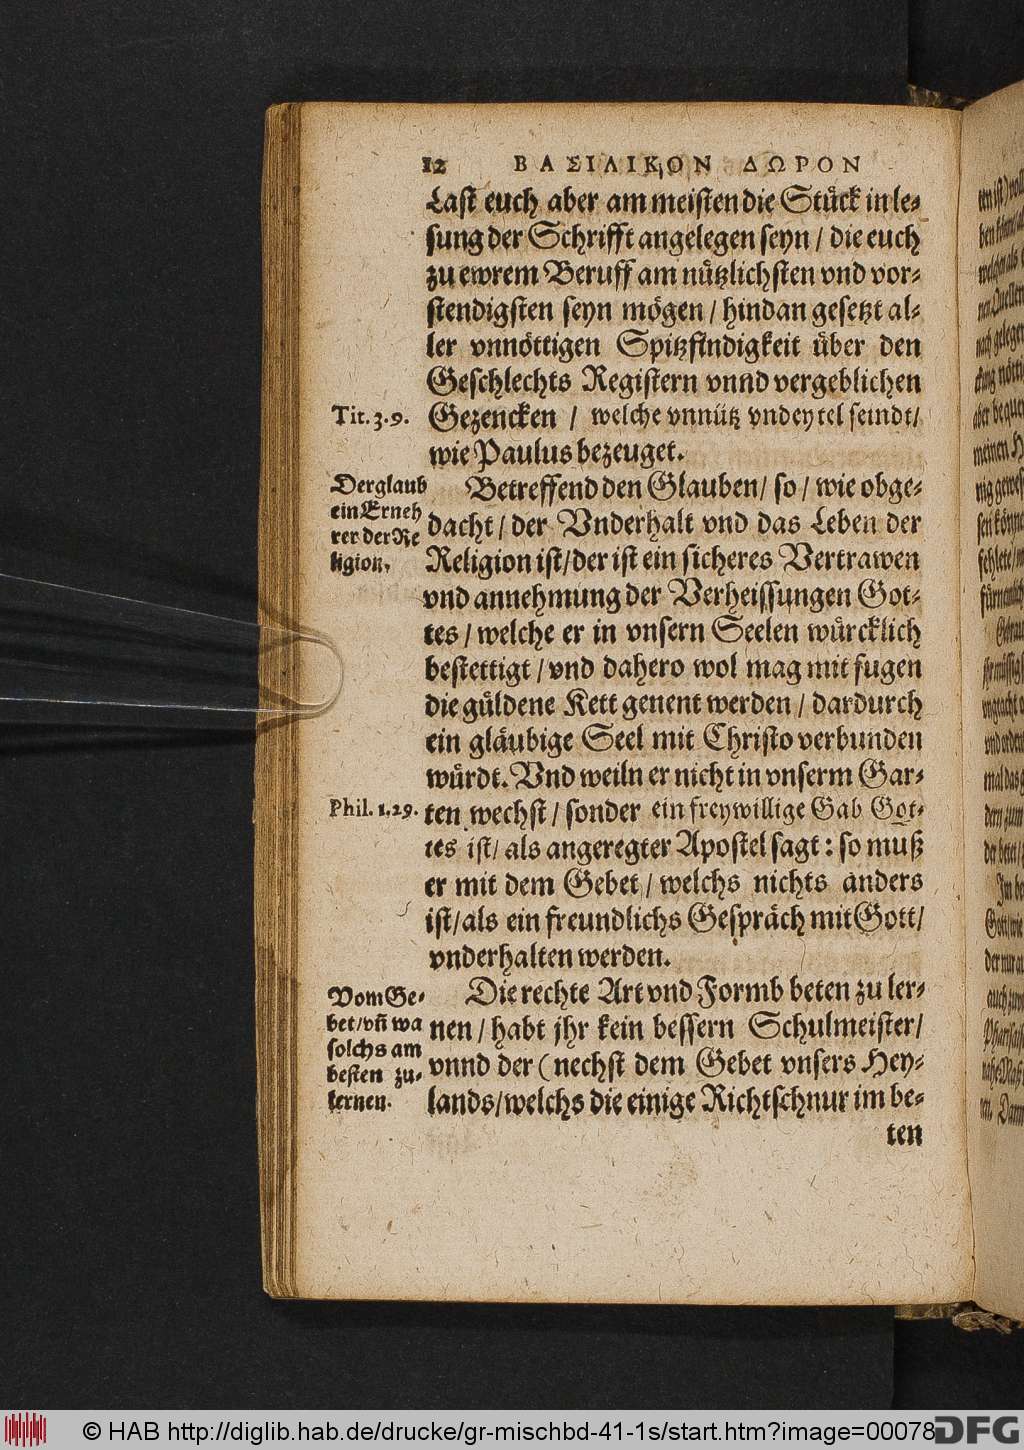 12 ΒΑΣΙΛΙΚΟΝ ΔΩΡΟΝ
Last euch aber am meisten die Stück in le⸗
sung der Schrifft angelegen seyn / die euch
zu ewrem Beruff am nützlichsten vnd vor⸗
stendigsten seyn mögen / hindan gesetzt al⸗
ler vnnöttigen Spitzfindigkeit über den
Geschlechts Registern vnnd vergeblichen
Tit. 3. 9.
Gezencken / welche vnnütz vnd eytel seindt /
wie Paulus bezeuget.
Der glaub
ein Erneh
rer der Re
ligion.
Betreffend den Glauben / so / wie obge⸗
dacht / der Vnderhalt vnd das Leben der
Religion ist / der ist ein sicheres Vertrawen
vnd annehmung der Verheissungen Got⸗
tes / welche er in vnsern Seelen würcklich
bestettigt / vnd dahero wol mag mit fugen
die güldene Kett genent werden / dardurch
ein gläubige Seel mit Christo verbunden
würdt. Vnd weiln er nicht in vnserm Gar⸗
Phil. 1. 29.
ten wechst / sonder ein freywillige Gab Got⸗
tes ist / als angeregter Apostel sagt : so muß
er mit dem Gebet / welchs nichts anders
ist / als ein freundlichs Gespräch mit Gott /
vnderhalten werden.
Vom Ge⸗
bet / vn̄ wa
solchs am
besten zu⸗
lernen.
Die rechte Art vnd Formb beten zu ler⸗
nen / habt jhr kein bessern Schulmeister /
vnnd der ( nechst dem Gebet vnsers Hey⸗
lands / welchs die einige Richtschnur im be⸗
ten
© HAB http://diglib.hab.de/drucke/gr-mischbd-41-1s/start.htm?image=00078
DFG